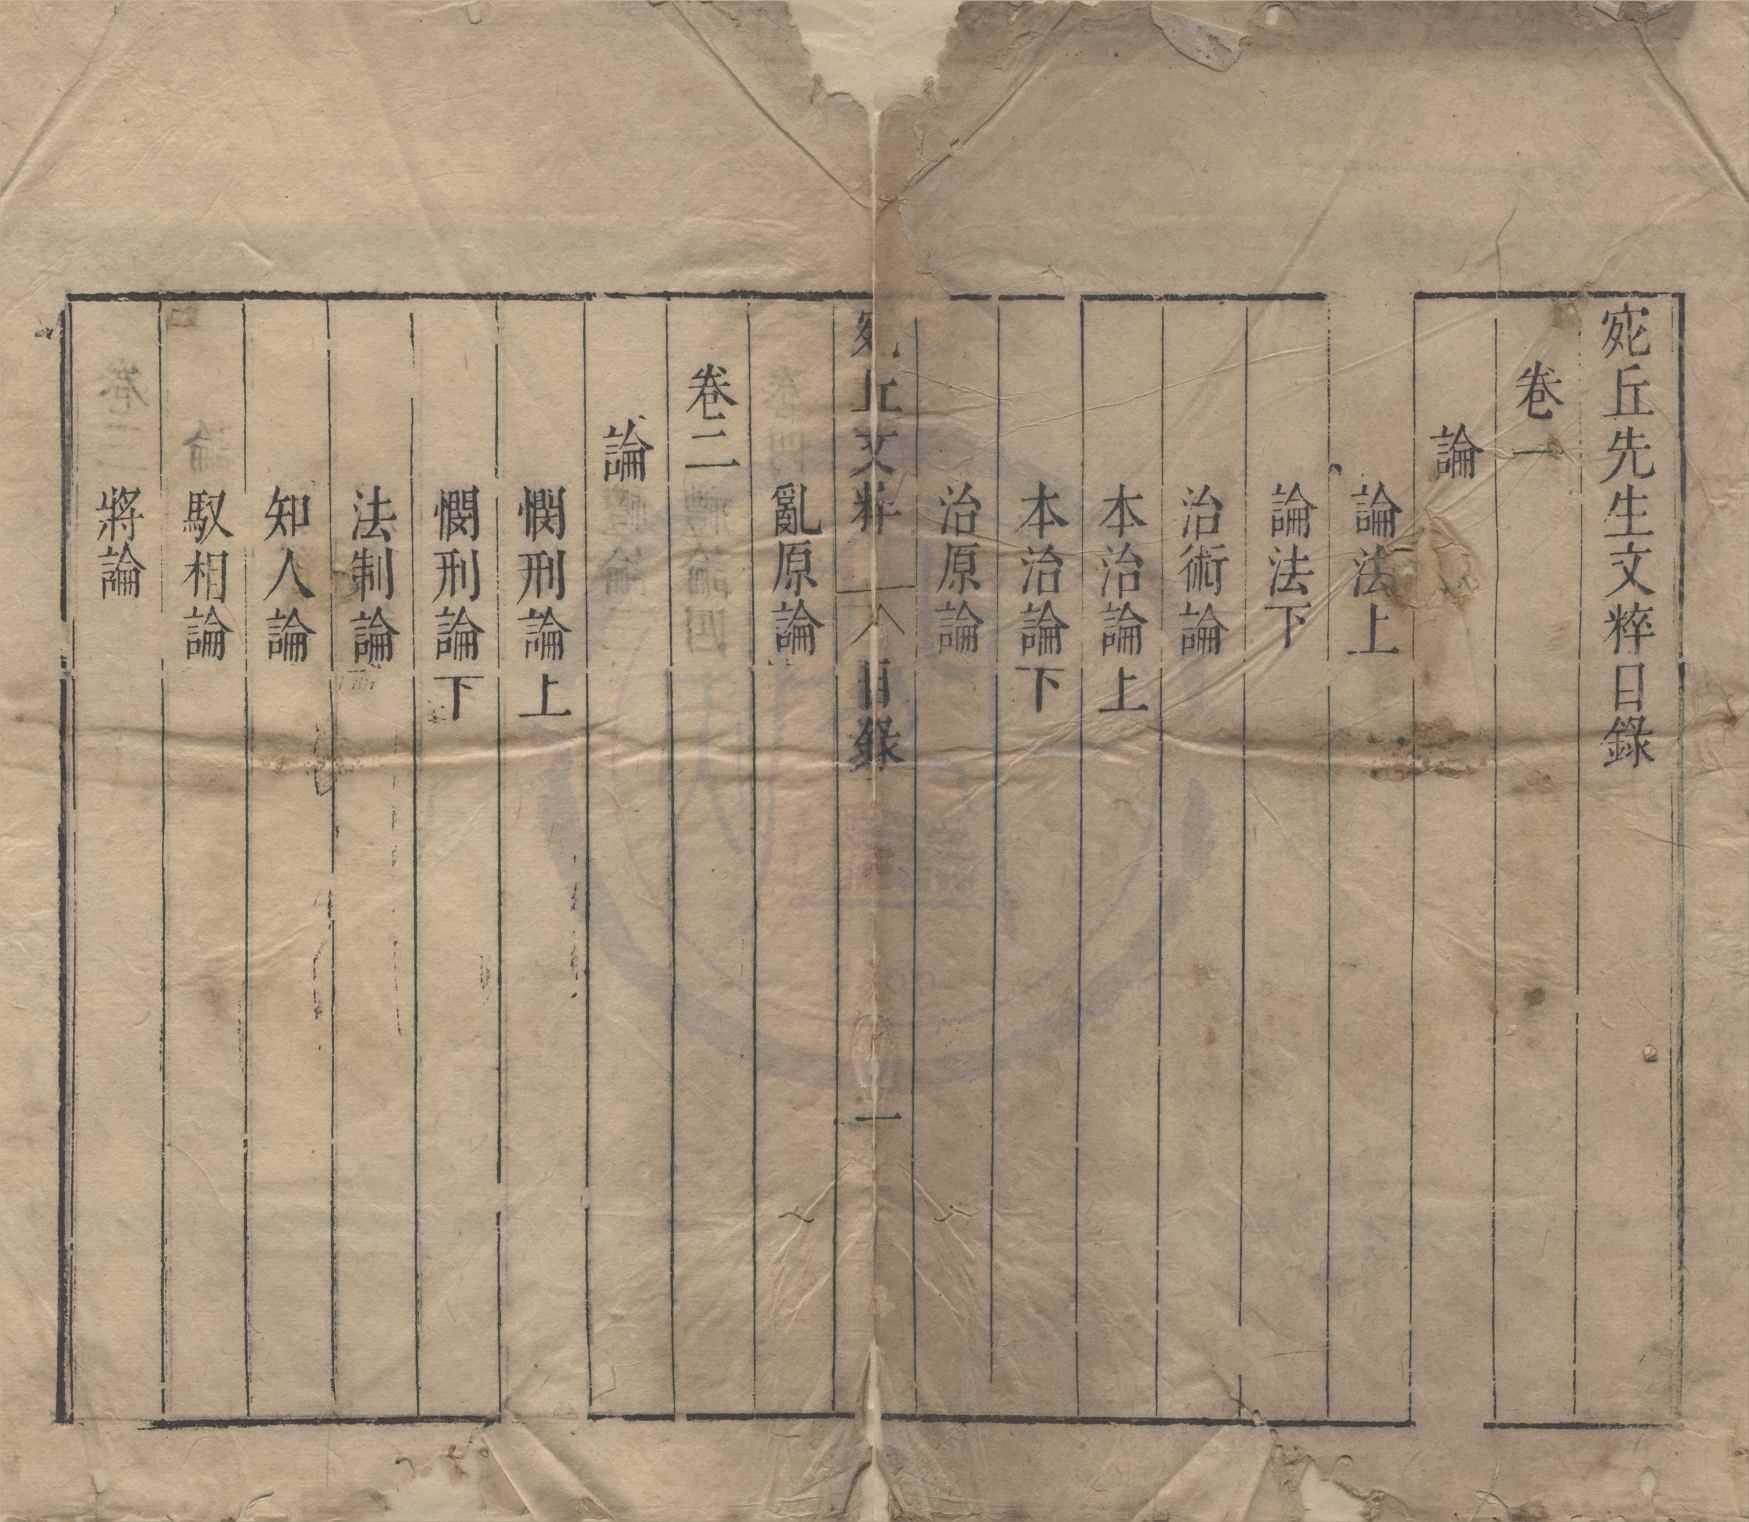 宛丘先生文粹目錄
卷一
論
論法上
論法下
治術論
本治論上
本治論下
治原論
宛丘文粹
目錄
一
亂原論
卷二
論
憫刑論上
憫刑論下
法制論
知人論
馭相論
將論